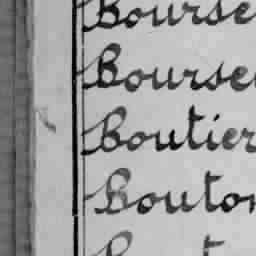 Bourse
Bourse
Boutier
Bouton